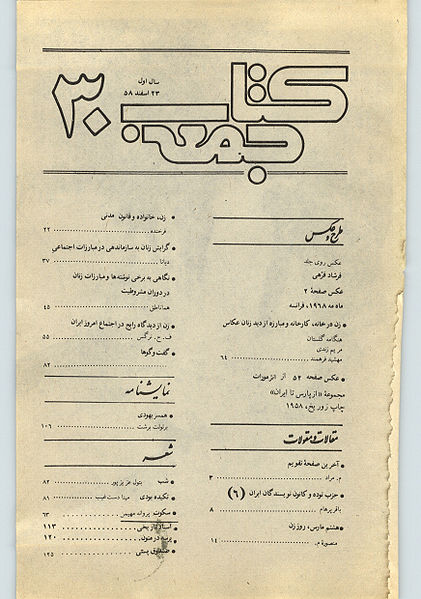 کتاب جمعه
۳۰
سال اول
۲۳ اسفند ۵۸
طرح و عکس
عکس روی جلد
فرشاد فرّهی
عکس صفحهٔ ۲
ماه مه ۱۹۶۸، فرانسه
• زن در خانه، کارخانه و مبارزه از دید زنان عکاس
هنگامه گلستان
مریم زندی
مهشید فرهمند ........ ۶۴
• عکس صفحه ۵۲ از انژ مورات
مجموعهٔ «از پارس تا ایران»
چاپ زوریخ، ۱۹۵۸
مقالات و مقولات
• آخرین صفحهٔ تقویم
م. مراد ........ ۳
• حزب توده و کانون نویسندگان ایران (۶)
باقر پرهام ........ ۸
• هشتم مارس، روز زن
منصوره م. ........ ۱۴
• زن، خانواده و قانون مدنی
فرخنده ........ ۲۲
• گرایش زنان به سازماندهی در مبارزات اجتماعی
دیانا ........ ۳۷
• نگاهی به برخی نوشته‌ها و مبارزات زنان
در دوران مشروطیت
هما ناطق ........ ۴۵
• زن از دیدگاه رایج در اجتماع امروز ایران
ف. ح. نرگس ........ ۵۵
• گفت‌وگوها
........ ۸۲
نمایشنامه
• همسر یهودی
برتولت برشت ........ ۱۰۶
شعر
• شب بتول عزیزپور ........ ۸۲
• تکیده بودی مینا دست‌غیب ........ ۸۹
• سکوت پروانه مهیمن ........ ۶۳
• اسناد تاریخی ........ ۱۱۳
• پرسه در متون ........ ۱۲۰
• صندوق پستی ........ ۱۲۵